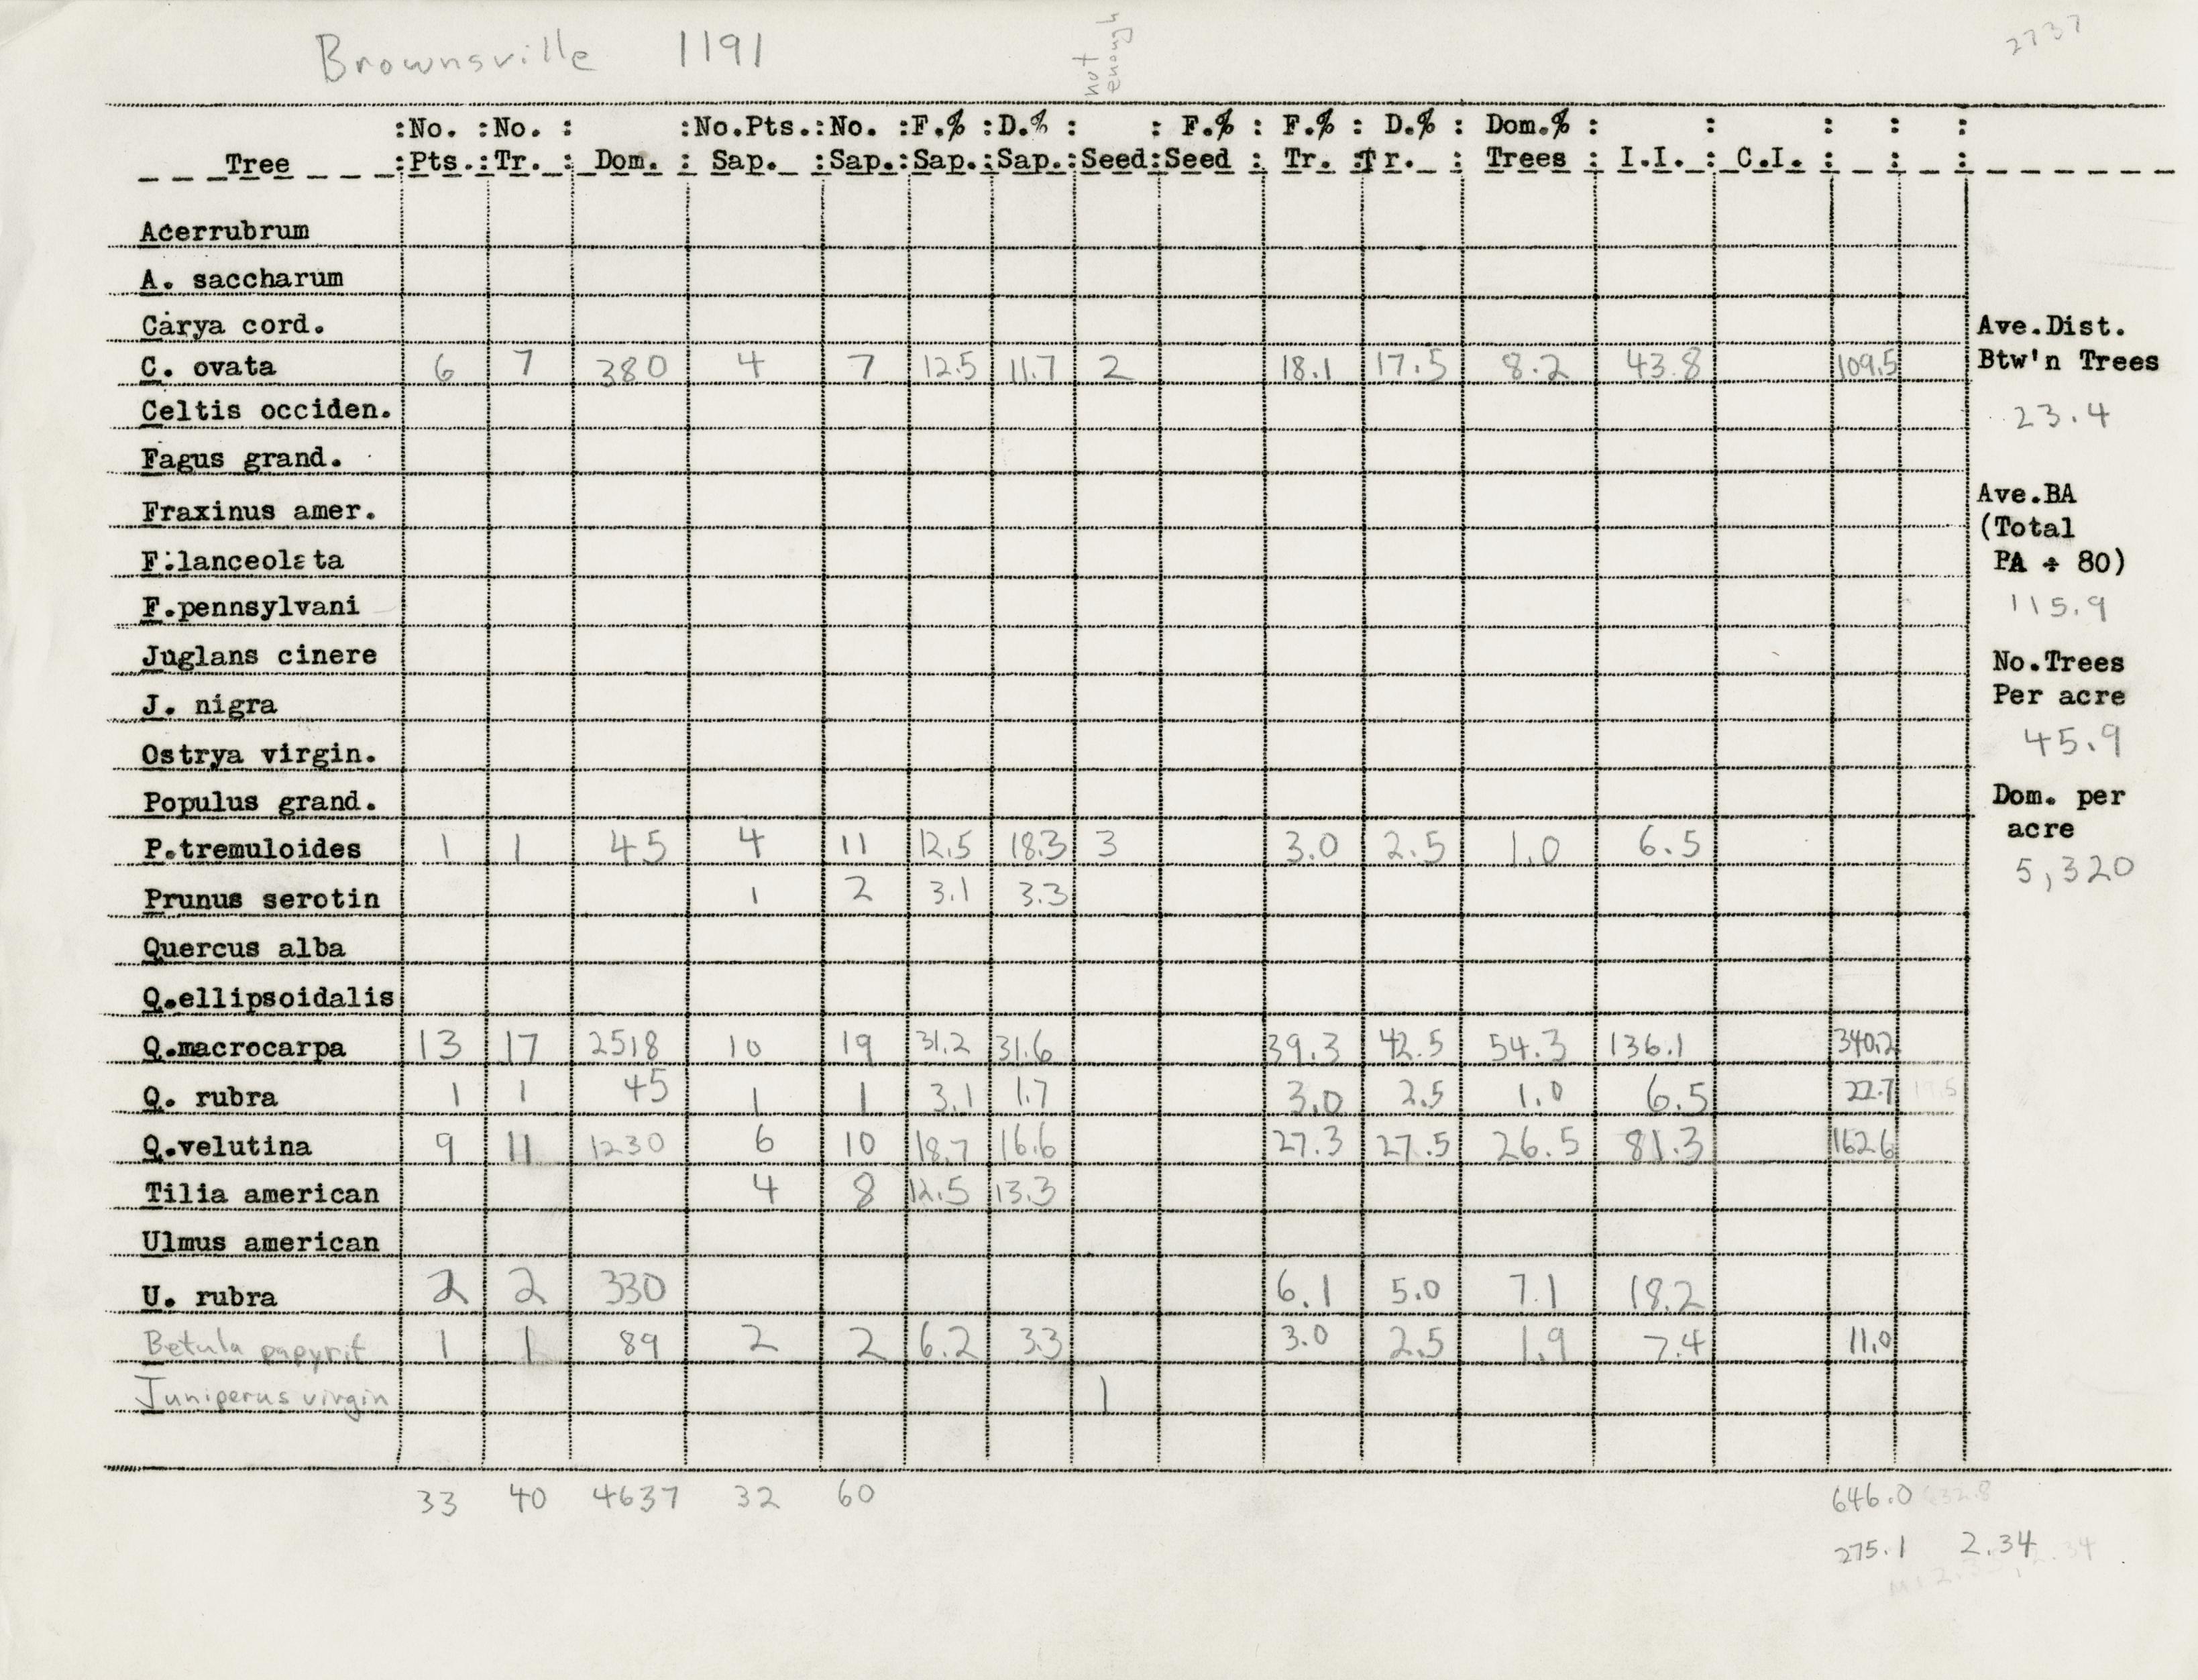 Brownsville 1191
not enough
2737
:No. :No. : :No.Pts.:No. :F.% :D.% : : F.% : F.% : D.% : Dom.% : : : : :
Tree :Pts.:Tr. : Dom. : Sap. :Sap.:Sap.:Sap.:Seed:Seed : Tr. :Tr. : Trees : I.I. : C.I. : : :
Acerrubrum
A. saccharum
Carya cord.
Ave.Dist.
Btw'n Trees
C. ovata 6 7 380 4 7 12.5 11.7 2 18.1 17.5 8.2 43.8 109.5
Celtis occiden.
23.4
Fagus grand.
Fraxinus amer.
Ave.BA
(Total
PA ÷ 80)
F.lanceolata
F.pennsylvani
115.9
Juglans cinere
No.Trees
Per acre
J. nigra
45.9
Ostrya virgin.
Populus grand.
Dom. per
acre
P.tremuloides 1 1 45 4 11 12.5 18.3 3 3.0 2.5 1.0 6.5
5,320
Prunus serotin 1 2 3.1 3.3
Quercus alba
Q.ellipsoidalis
Q.macrocarpa 13 17 2518 10 19 31.2 31.6 39.3 42.5 54.3 136.1 340.2
Q. rubra 1 1 45 1 1 3.1 1.7 3.0 2.5 1.0 6.5 22.7
Q.velutina 9 11 1230 6 10 18.7 16.6 27.3 27.5 26.5 81.3 162.6
Tilia american 4 8 12.5 13.3
Ulmus american
U. rubra 2 2 330 6.1 5.0 7.1 18.2
Betula papyrif 1 1 89 2 2 6.2 3.3 3.0 2.5 1.9 7.4 11.0
Juniperus virgin 1
33 40 4637 32 60 646.0 632.8
275.1 2.34 2.34